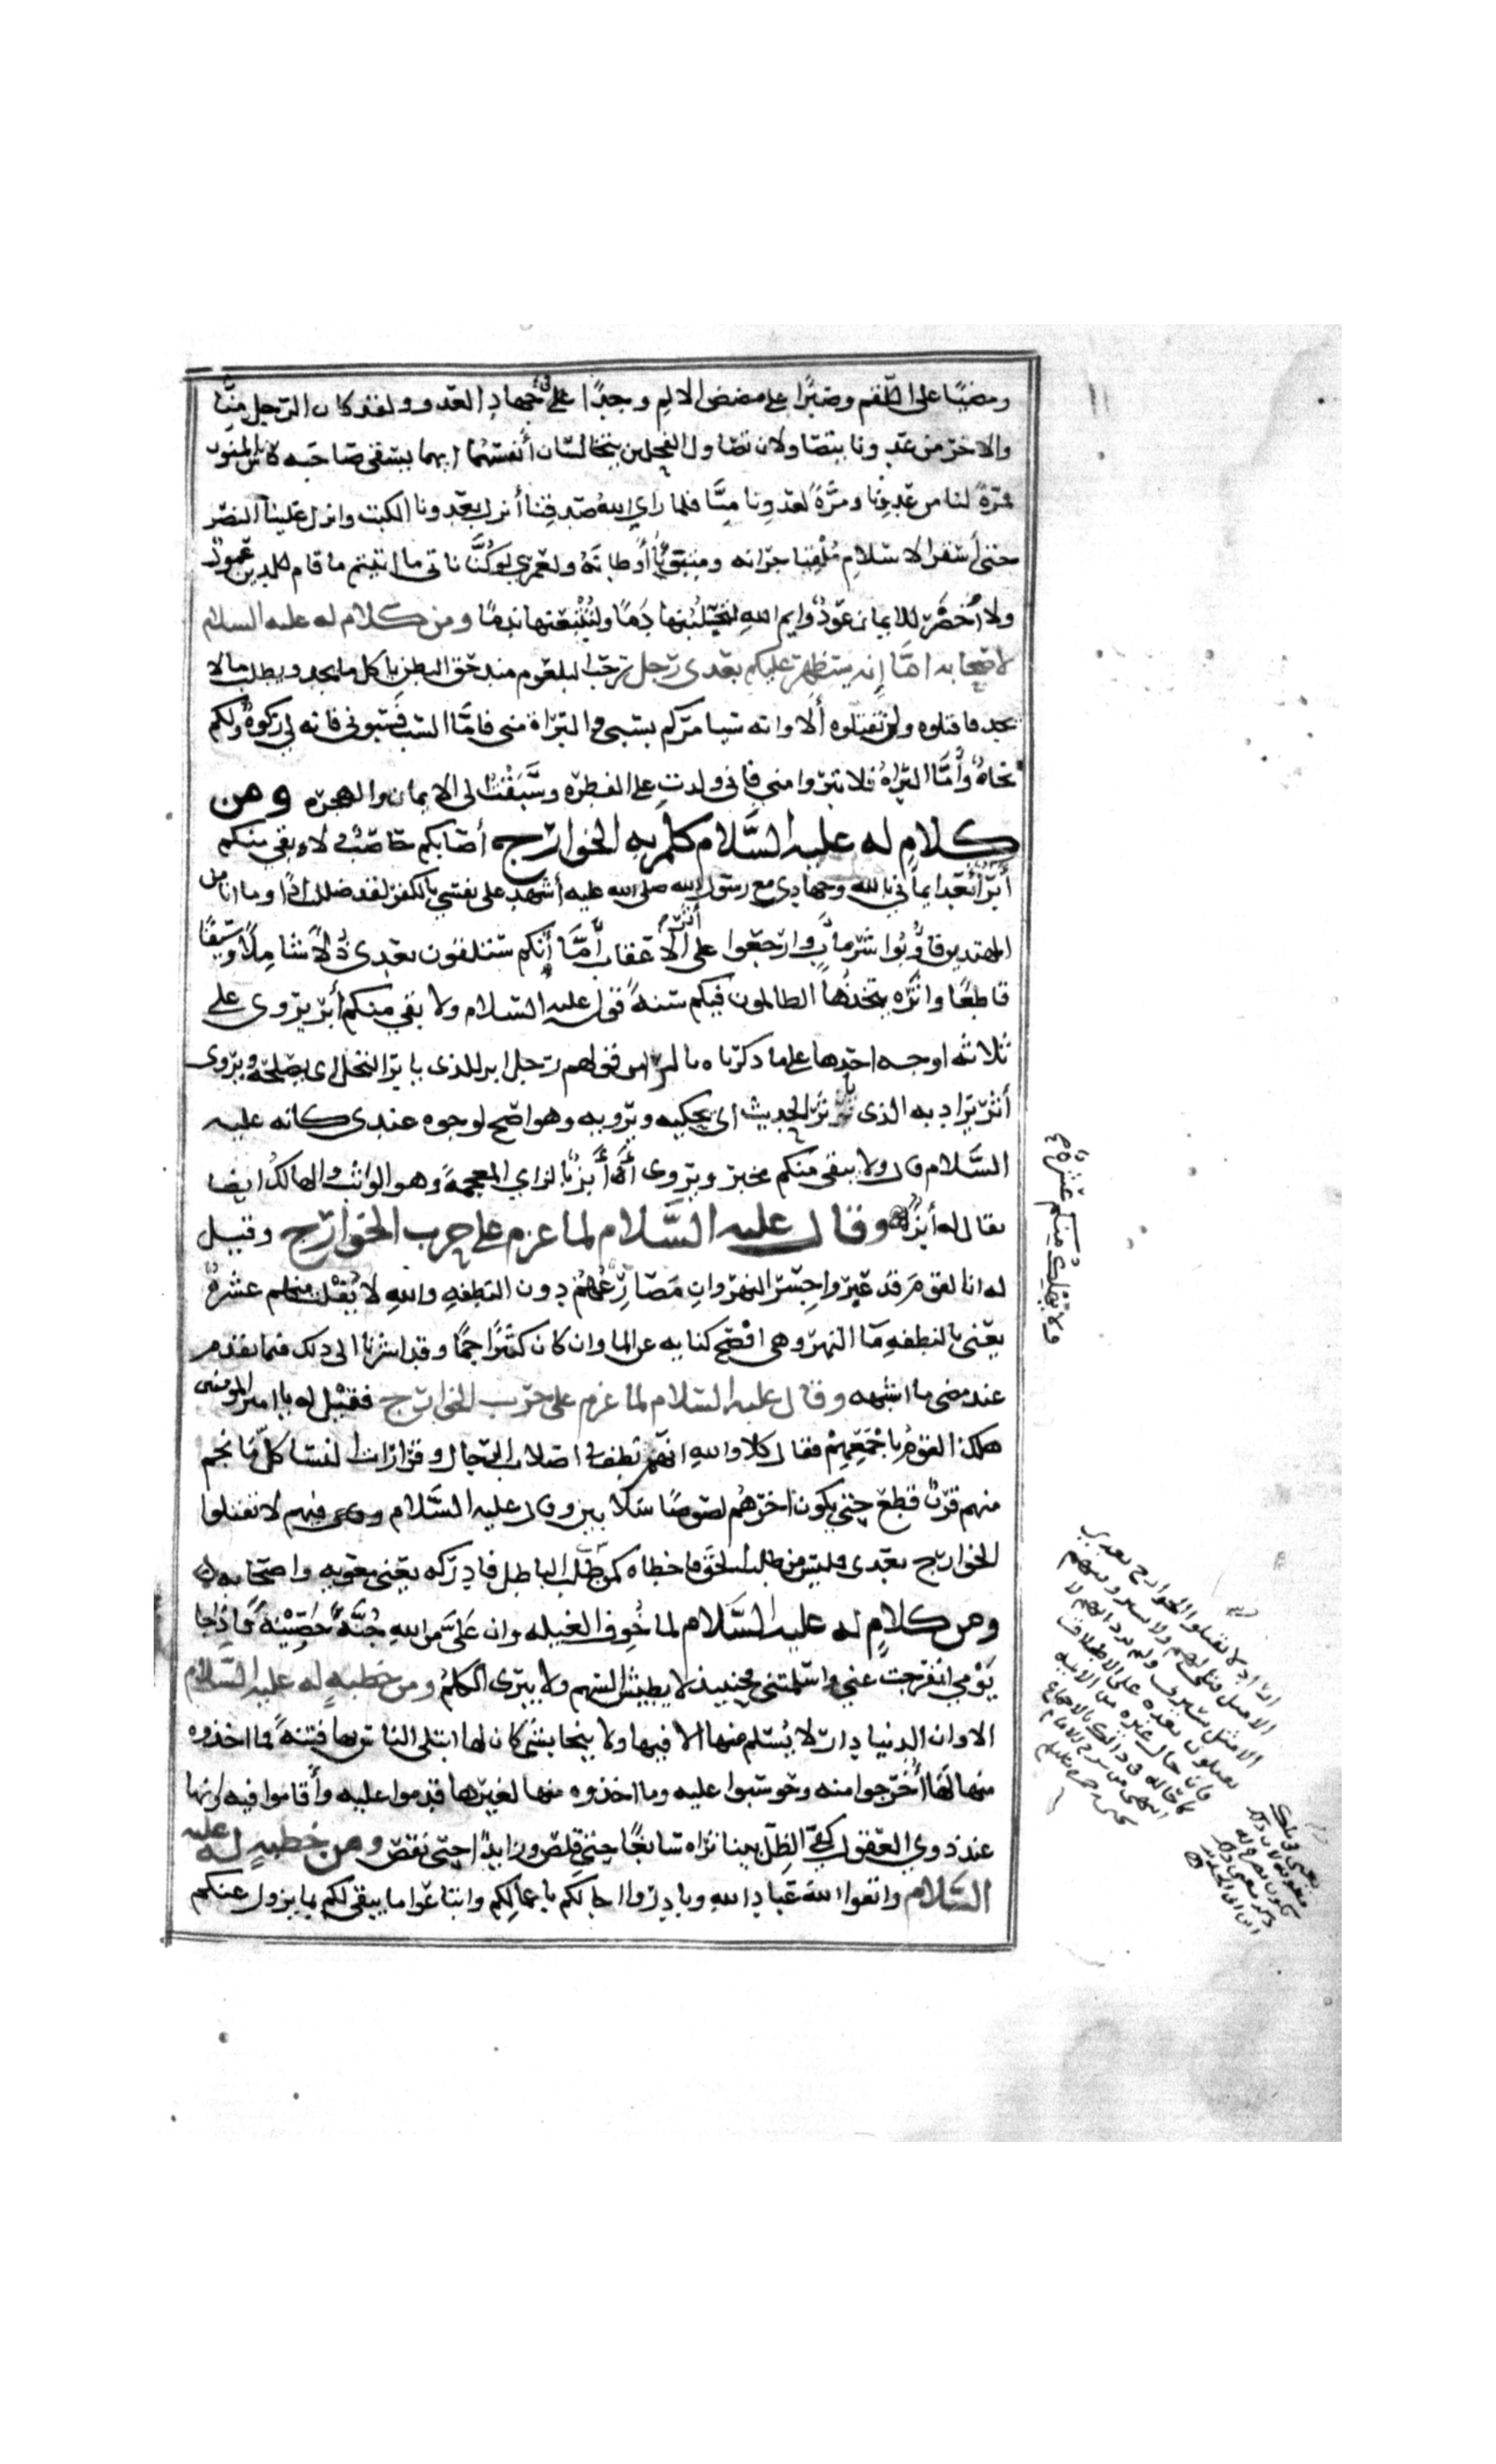 ومضيًا على اللقم وصبرًا على مضض الالم وجدًا على جهاد العدو ولقد كان الرجل منّا
والاخر من عدونا يتصاولان تصاول الفحلين يتخالسان أنفسهما ايهما يسقى صاحبه كاس المنون
فمرةً لنا من عدونا ومرّةً لعدونا منّا فلما راى الله صدقنا أنزل بعدونا الكبت وانزل علينا النصر
حتى أستقر الاسلام مُلقيًا جرانه ومتبوّئًا أوطانَهُ ولعمرى لو كنّا ناتى ما اتيتم ما قام للدين عمود
ولا أخضرّ للايمان عودٌ وايم الله لتحتلبنها دمًا ولتتبعنها ندمًا ومن كلام له عليه السلام
لاصحابه امّا إنه سيظهر عليكم بعدى رجل رحب البلعوم مندحق البطن ياكل ما يجد ويطلب ما لا
يجد فاقتلوه ولن تقتلوه ألا وانه سيامركم بسبى والبراة منى فامّا السب فسبونى فانه لى زكوة ولكم
نجاة وأمّا البراة فلا تبروا منى فانى ولدت على الفطرة وسبقت الى الايمان والهجرة ومن
كلام له عليه السَّلام كلم به الخوارج أصابكم حاصب ولا بقى منكم
أبر أبعد ايمانى بالله وجهادى مع رسول الله صلى الله عليه أشهد على نفسى بالكفر لقد ضللت اذًا وما انا من
المهتدين فأوبوا شر مآب وارجعوا على اثر الاعقاب أمّا إنكم ستلقون بعدى ذُلًا شاملًا وسيفًا
قاطعًا واثرة يتخذها الظالمون فيكم سنةً قوله عليه السلام ولا بقى منكم أبر يروى على
ثلاثه اوجه احدها على ما ذكرناه بالرا من قولهم رجل ابر للذى يابر النخل اى يصلحه ويروى
أثر يراد به الذى ياثر الحديث اى يحكيه ويرويه وهو اصح الوجوه عندى كانه عليه
السَّلام قال ولا بقى منكم مخبر ويروى أبز بالزاي المعجمة وهو الواثب والهالك ايضا
يقال له أبز وقال عليه السَّلام لما عزم على حرب الخوارج وقيل
له ان القوم قد عبروا جسر النهروان مصارعهم دون النطفه والله لا يُفلت منهم عشرة
ولا يهلك منكم عشرة
يعنى بالنطفه ما النهر وهى افصح كنايه عن الما وان كان كثيرًا جمًا وقد اشرنا الى ذلك فيما تقدم
عند مضى ما اشبهه وقال عليه السلام لما عزم على حرب الخوارج فقيل له يا امير المومنين
هلك القوم باجمعهم فقال كلا والله انهم نطف فى اصلاب الرجال وقرارات النسا كلما نجم
منهم قرن قطع حتى يكون اخرهم لصوصًا سلابين وقال عليه السَّلام فيهم لا تقتلوا
الخوارج بعدى فليس من طلب الحق فاخطاه كمن طلب الباطل فادركه يعنى معويه واصحابه
ومن كلامٍ له عليه السَّلام لما خُوف الغيله وان على من الله جُنّةً حصينةً فاذا جا
يومى انفرجت عنى واسلمتنى فحينيذ لا يطيش السهم ولا يبرى الكلمُ ومن خطبهٍ له عليه السلام
الا وان الدنيا دار لا يُسلم منها الا فيها ولا ينجا بشى كان لها ابتلى الناس بها فتنةً فما اخذوه
منها لها أُخرجوا منه وحوسبوا عليه وما اخذوه منها لغيرها قدموا عليه وأقاموا فيه وانها
عند ذوي العقول كفى الظل بينا تراه سابغًا حتى قلص وزايدًا حتى نقص ومن خطبهٍ له عليه
السَّلام واتقوا الله عباد الله وبادروا اجالكم باعمالكم وابتاعوا ما يبقى لكم بما يزول عنكم